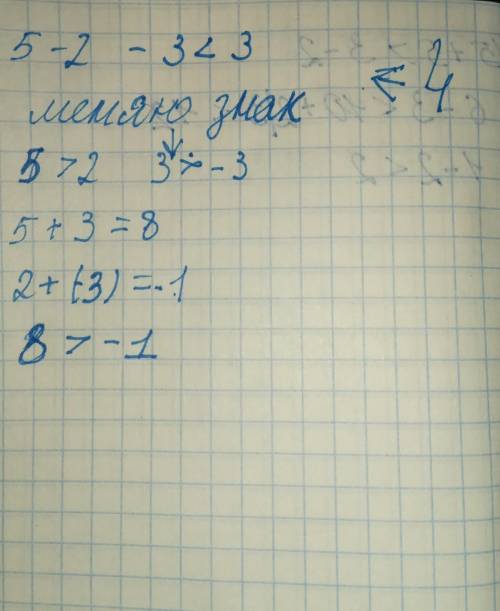 5 - 2 - 3 < 3
меняю знак
5 > 2 3 > - 3
5 + 3 = 8
2 + (-3) = -1
8 > - 1